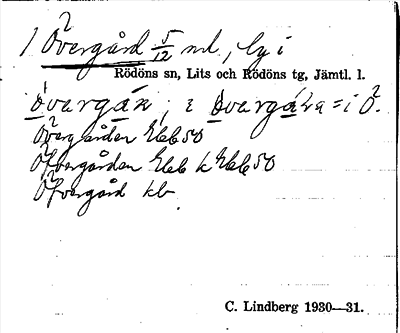 1 Övergård 5/12 ml, by i
Rödöns sn, Lits och Rödöns tg, Jämtl. l.
övergán, i övergáɳa = i Ö.
Övergården Eleb 50
Öfvergården Eleb k Eleb 50
Öfvergård kb
C. Lindberg 1930—31.